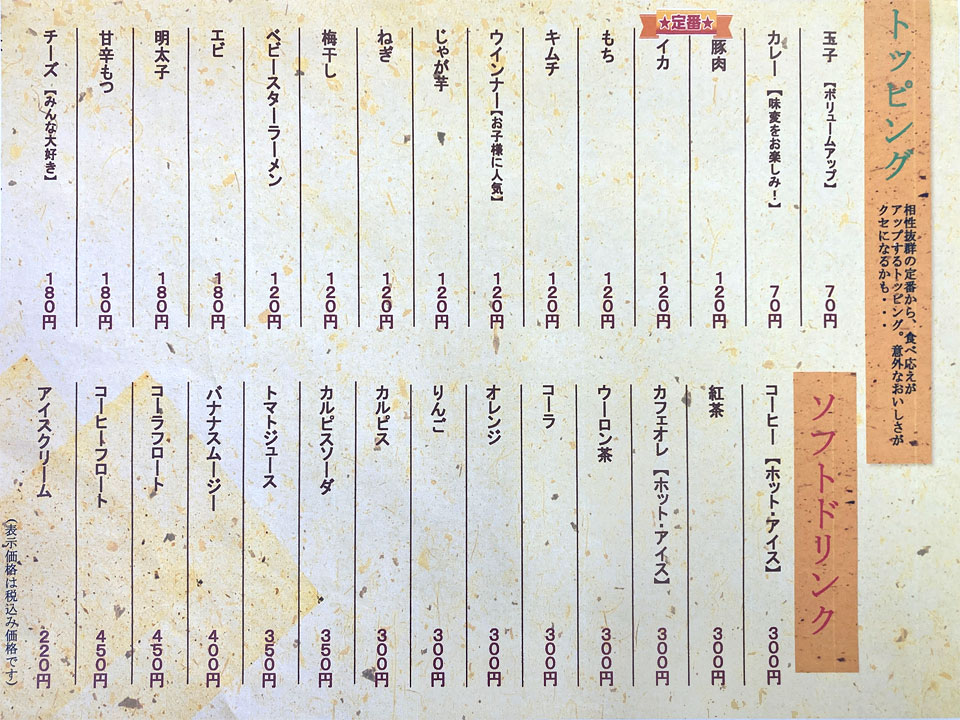 トッピング
相性抜群の定番から、食べ応えが
アップするトッピング。意外なおいしさが
クセになるかも・・・
玉子 【ボリュームアップ】 70円
カレー 【味変をお楽しみ！】 70円
★定番★
豚肉 120円
イカ 120円
もち 120円
キムチ 120円
ウインナー【お子様に人気】 120円
じゃが芋 120円
ねぎ 120円
梅干し 120円
ベビースターラーメン 120円
エビ 180円
明太子 180円
甘辛もつ 180円
チーズ 【みんな大好き】 180円
ソフトドリンク
コーヒー 【ホット・アイス】 300円
紅茶 300円
カフェオレ 【ホット・アイス】 300円
ウーロン茶 300円
コーラ 300円
オレンジ 300円
りんご 300円
カルピス 300円
カルピスソーダ 350円
トマトジュース 350円
バナナスムージー 400円
コーラフロート 450円
コーヒーフロート 450円
アイスクリーム 220円
（表示価格は税込み価格です）